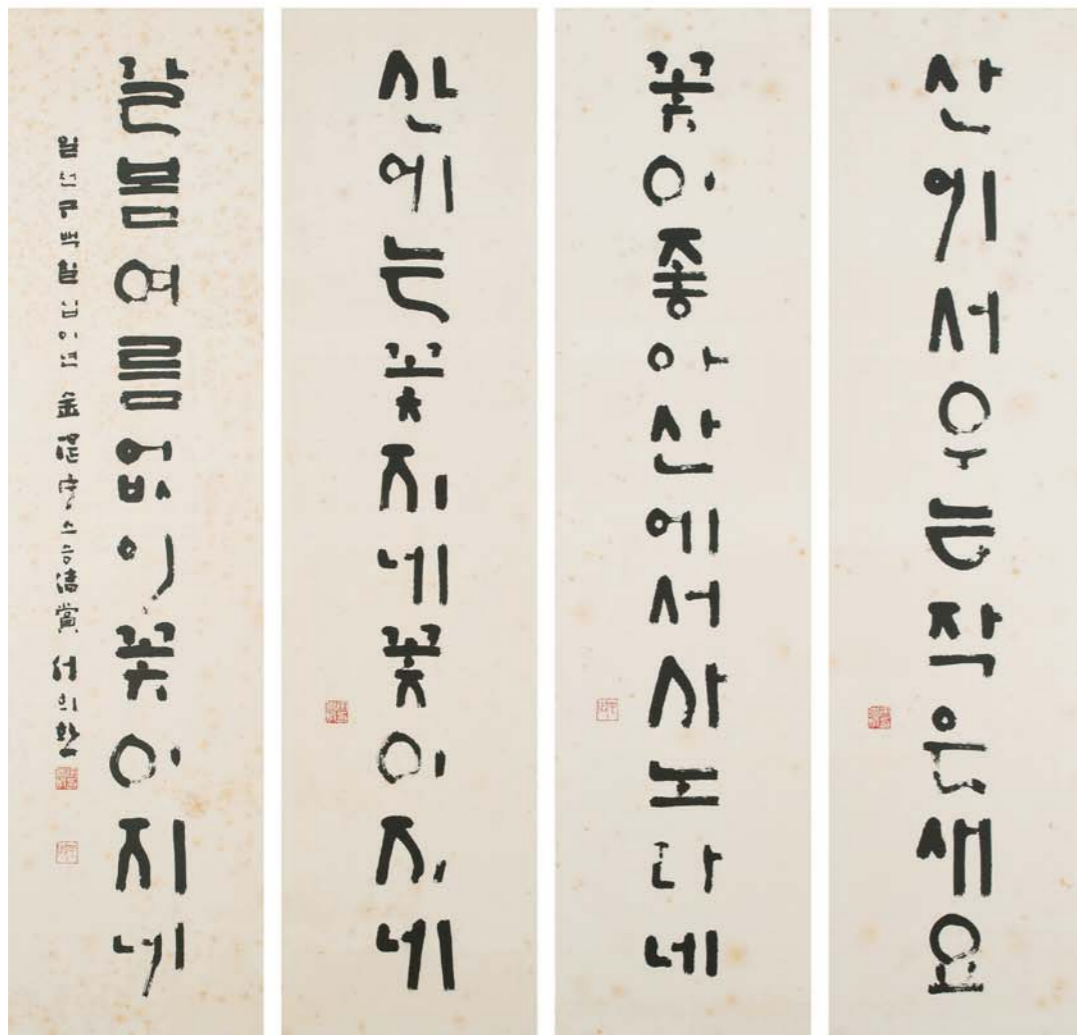 산에서우는작은새요
꽃이좋아산에서사노라네
산에는꽃지네꽃이지네
갈봄여름없이꽃이지네
일천구백칠십이년 金 스승淸賞 서희환